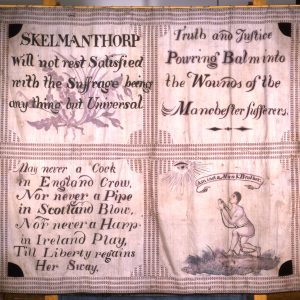 SKELMANTHORP
Will not rest Satisfied
with the Suffrage being
any thing but Universal
Truth and Justice
Pouring Balm into
the Wounds of the
Manchester Sufferers.
May never a Cock
in England Crow,
Nor never a Pipe
in Scotland Blow,
Nor never a Harp
in Ireland Play,
Till Liberty regains
Her Sway.
Am I not a Man & Brother